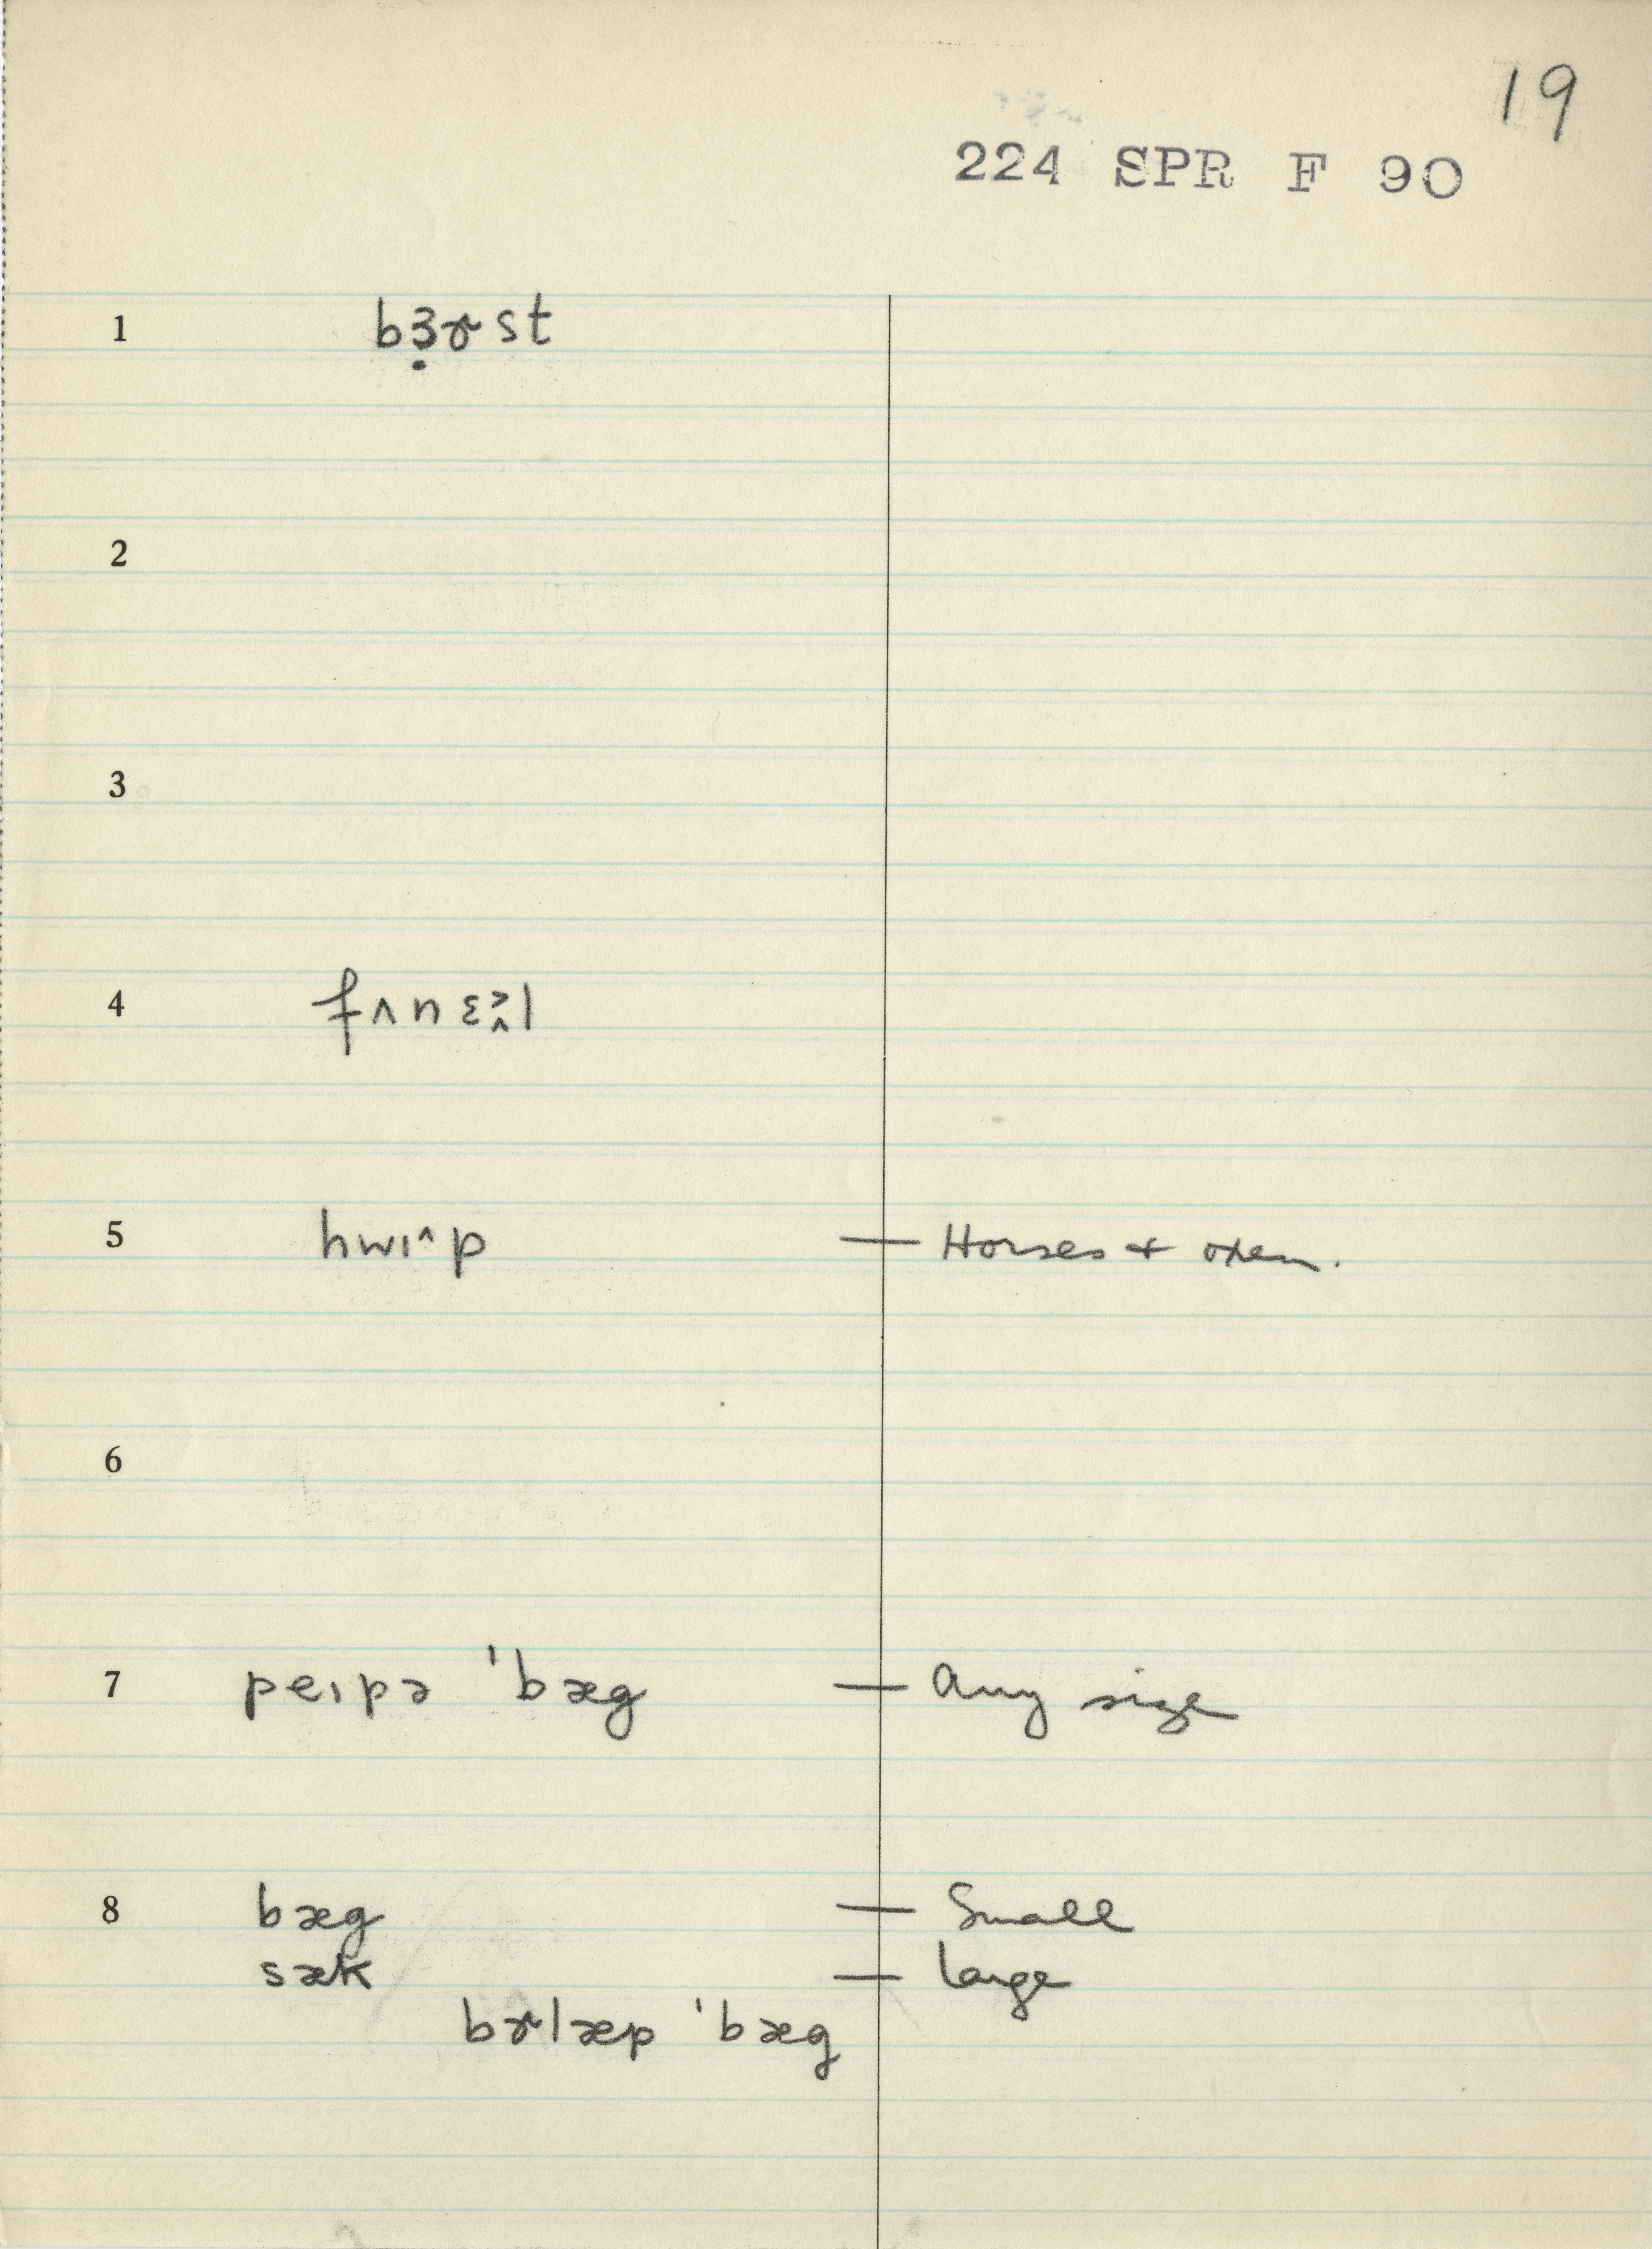 19
224 SPR F 90
1 bɜ̣ɚst
2
3
4 fʌnɛ>̬l
5 hwɪ^p — Horses + oxen.
6
7 peɪpə 'bæg — Any size
8 bæg — Small
sæk — large
bɚlæp 'bæg